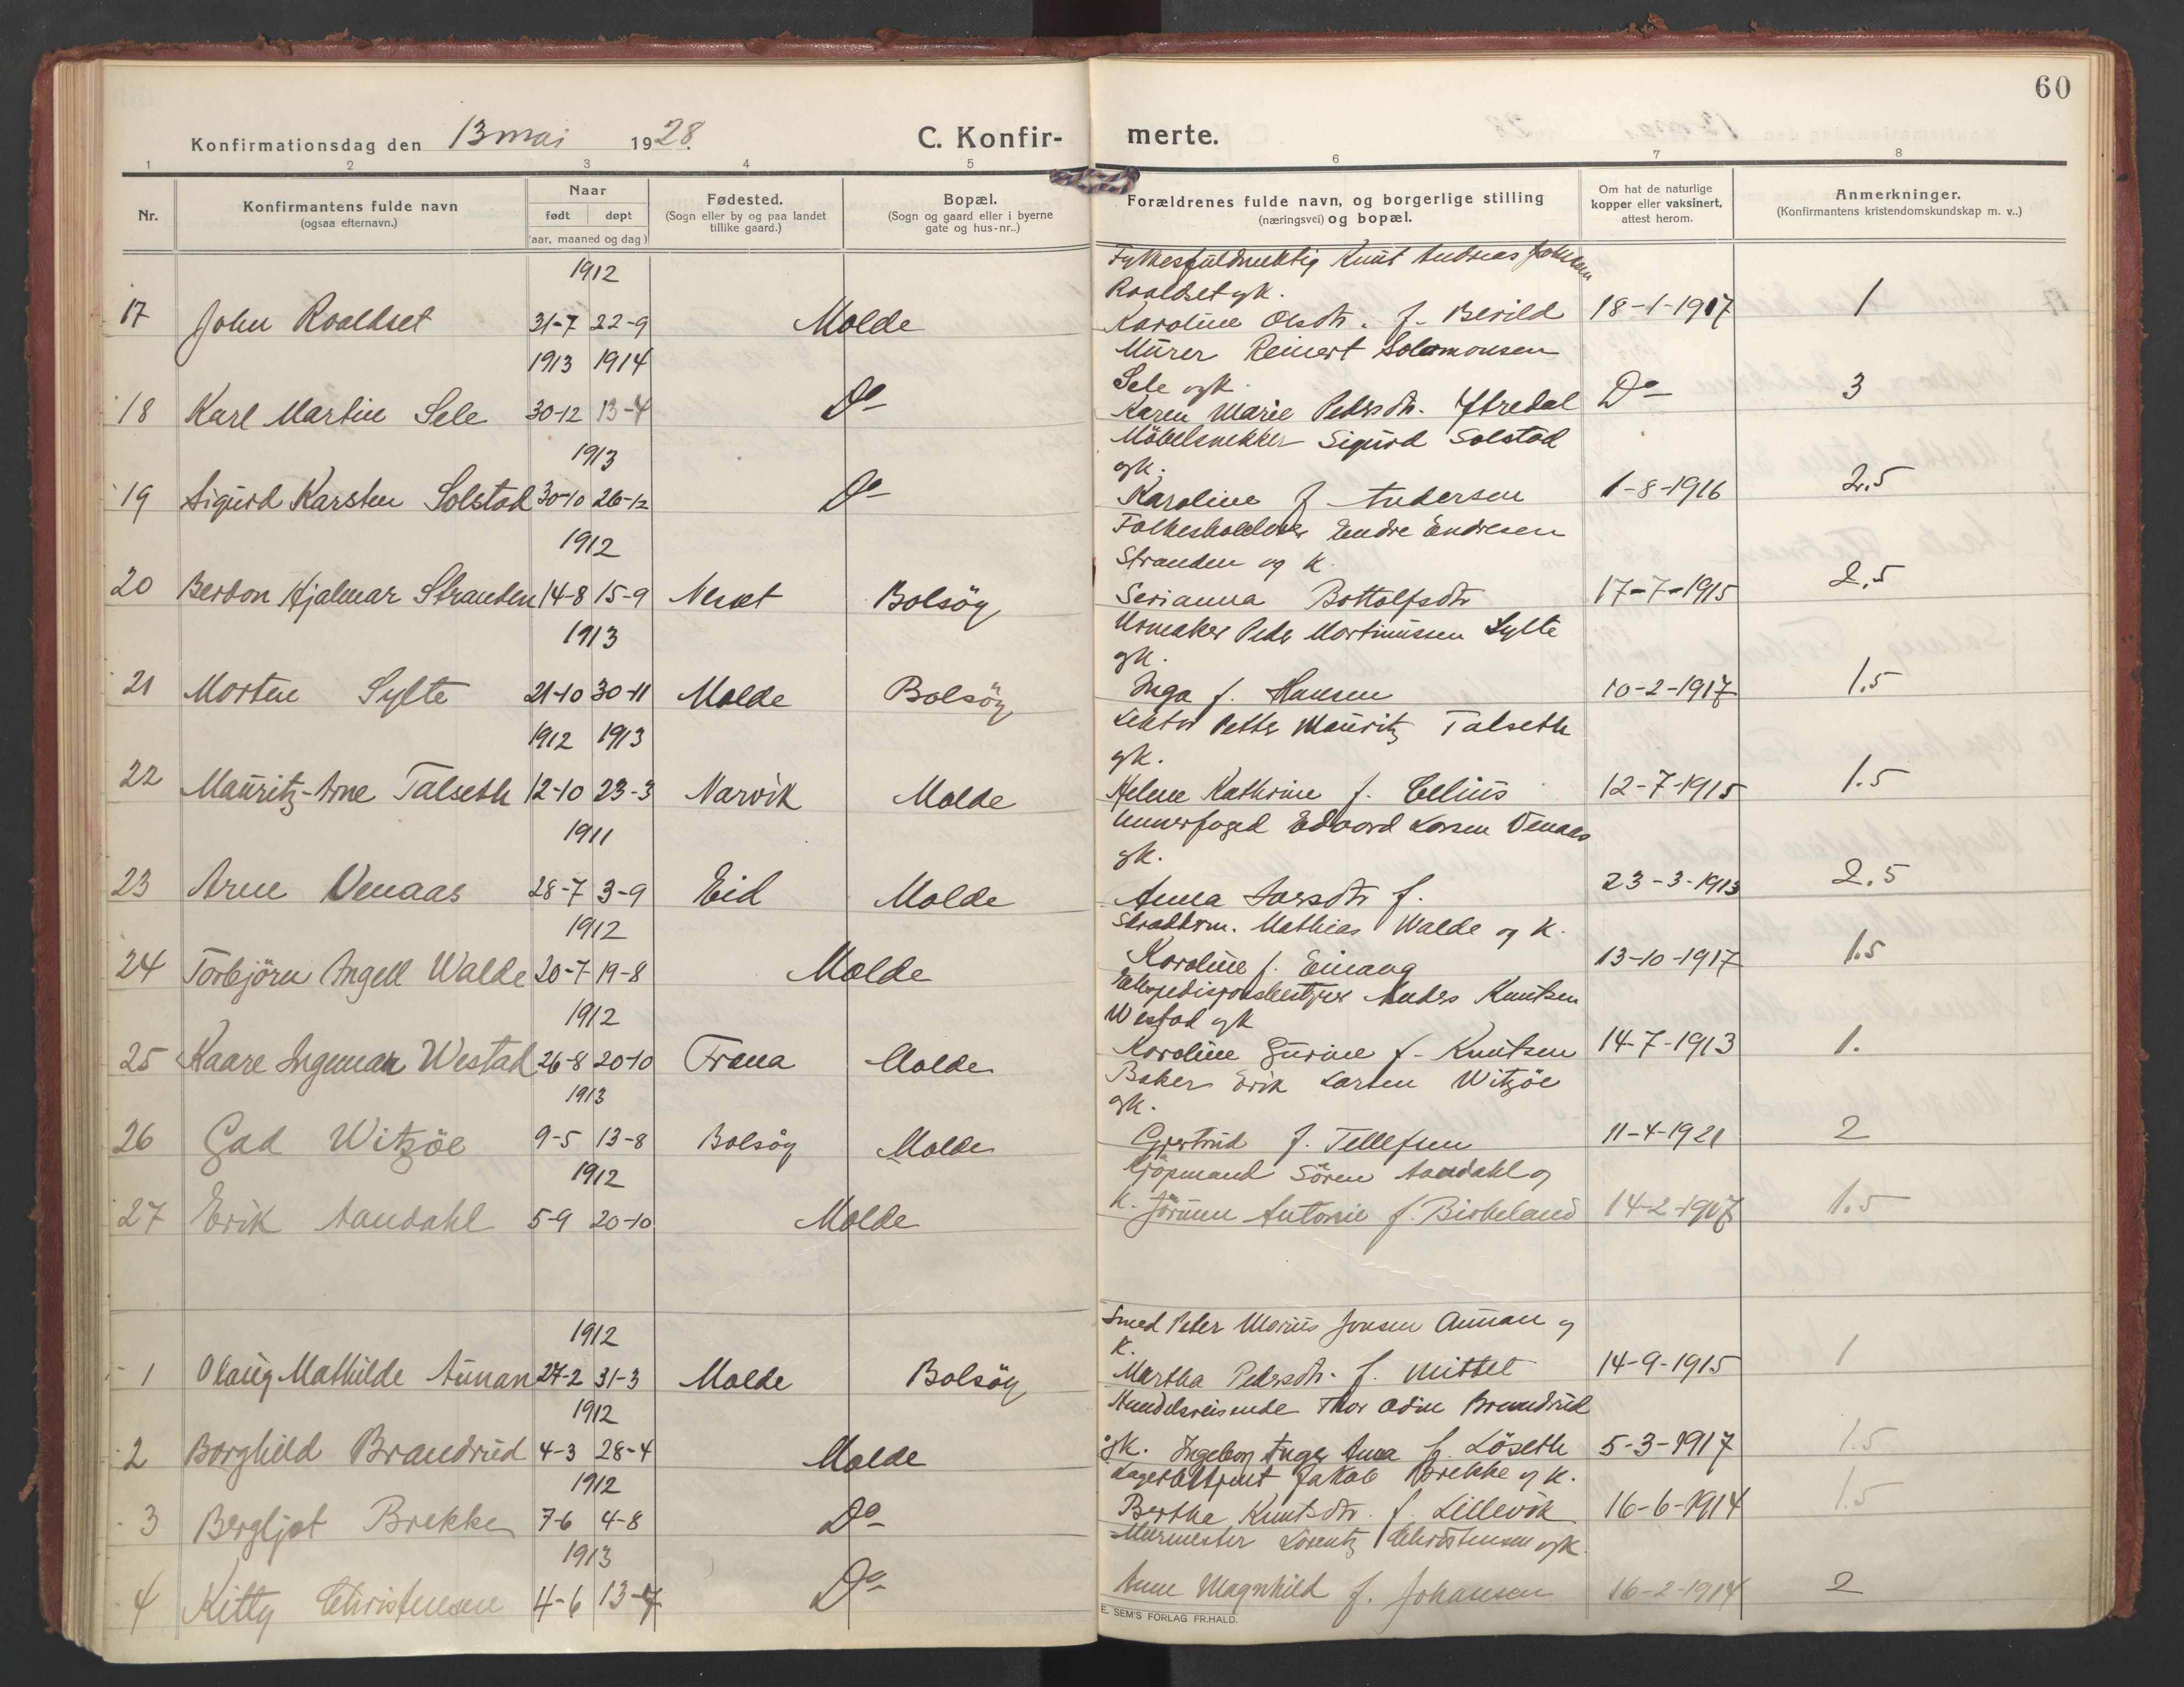 60
Konfirmationsdag den 13 mai 1928.
C. Konfir-merte.
1 2 3 4 5 6 7 8
Nr.
Konfirmantens fulde navn
(ogsaa efternavn.)
Naar
født døpt
(aar, maaned og dag)
Fødested.
(Sogn eller by og paa landet
tillike gaard.)
Bopæl.
(Sogn og gaard eller i byerne
gate og hus-nr..)
Forældrenes fulde navn, og borgerlige stilling
(næringsvei) og bopæl.
Om hat de naturlige
kopper eller vaksinert,
attest herom.
Anmerkninger.
(Konfirmantens kristendomskundskap m. v..)
1912
Fylkesfuldmektig Knut Andreas Johnsen
Roaldset og k.
17 John Roaldset 31-7 22-9 Molde Karoline Olsdtr. f. Berild 18-1-1917 1
1913 1914
Murer Reinert Solomonsen
Sele og k.
18 Karl Martin Sele 30-12 13-4 Do Karen Marie Pedersdtr. Ytredal Do 3
1913
Möbelsnekker Sigurd Solstad
og k.
19 Sigurd Karsten Solstad 30-10 26-12 Do Karoline f Andersen 1-8-1916 2.5
1912
Endre Endresen
Stranden og k.
20 Berdon Hjalmar Stranden 14-8 15-9 Nesset Bolsöy Serianna Bottolfsdtr 17-7-1915 2,5
1913
Urmaker Peder Martinussen Sylte
og k.
21 Morten Sylte 21-10 30-11 Molde Bolsöy Inga f. Hansen 10-2-1917 1.5
1912 1913
Lektor Petter Mauritz Talseth
og k.
22 Mauritz-Arne Talseth 12-10 23-3 Narvik Molde Helene Kathrine f. Celius 12-7-1915 1.5
1911
Edvard Larsen Venaas
og k.
23 Arne Venaas 28-7 3-9 Eid Molde Anna Larsdtr f. 23-3-1913 2.5
1912
Mathias Walde og k.
24 Torbjörn Ingell Walde 20-7 19-8 Molde Karoline f. Einang 13-10-1917 1.5
1912
Ekspedisjonsbestyrer Anders Knutsen
Westad og k
25 Kaare Ingemar Westad 26-8 20-10 Fræna Molde Karoline Gurine f. Knutsen 14-7-1913 1.
1913
Baker Erik Larsen Witzöe
og k.
26 Gad Witzöe 9-5 13-8 Bolsöy Molde Gjertrud f. Tellefsen 11-4-1921 2
1912
Kjöpmand Sören Aandahl og
27 Erik Aandahl 5-9 20-10 Molde k. Jörgine Antonie f. Birkeland 14-2-1917 1.5
1912
Smed Peter Marius Jonsen Aunan og
k.
1 Olaug Mathilde Aunan 27-2 31-3 Molde Bolsöy Martha Pedersdtr. f. Mittet 14-9-1915 1
1912
Handelsreisende Thor Odin Brandrud
2 Borghild Brandrud 4-3 28-4 Molde og k. Ingeborg Inger Anna f. Löseth 5-3-1917 1.5
1912
Lagerbetjent Jakob Brekke og k.
3 Bergljot Brekke 7-6 4-8 Do Berthe Knutsdtr. f. Lillevik 16-6-1914 1.5
1913
Murmester Lorentz Christensen og k.
4 Kitty Christensen 4-6 13-7 Do Anne Magnhild f. Johansen 16-2-1914 2
E. SEM'S FORLAG FR.HALD.